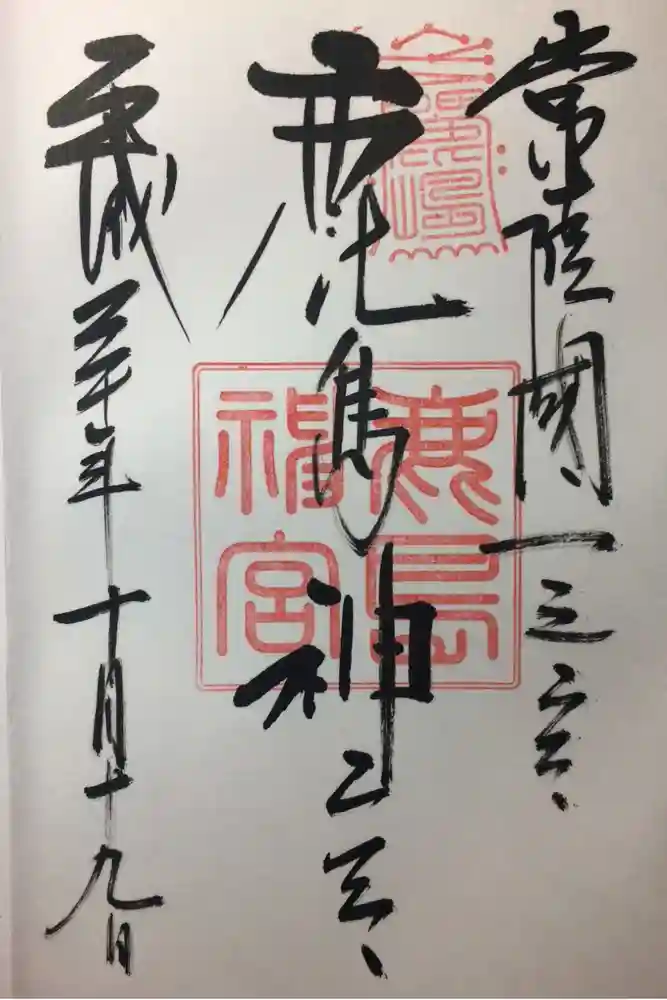 常陸國一之宮
鹿島神宮
平成三十年十月十九日
鹿島
神宮